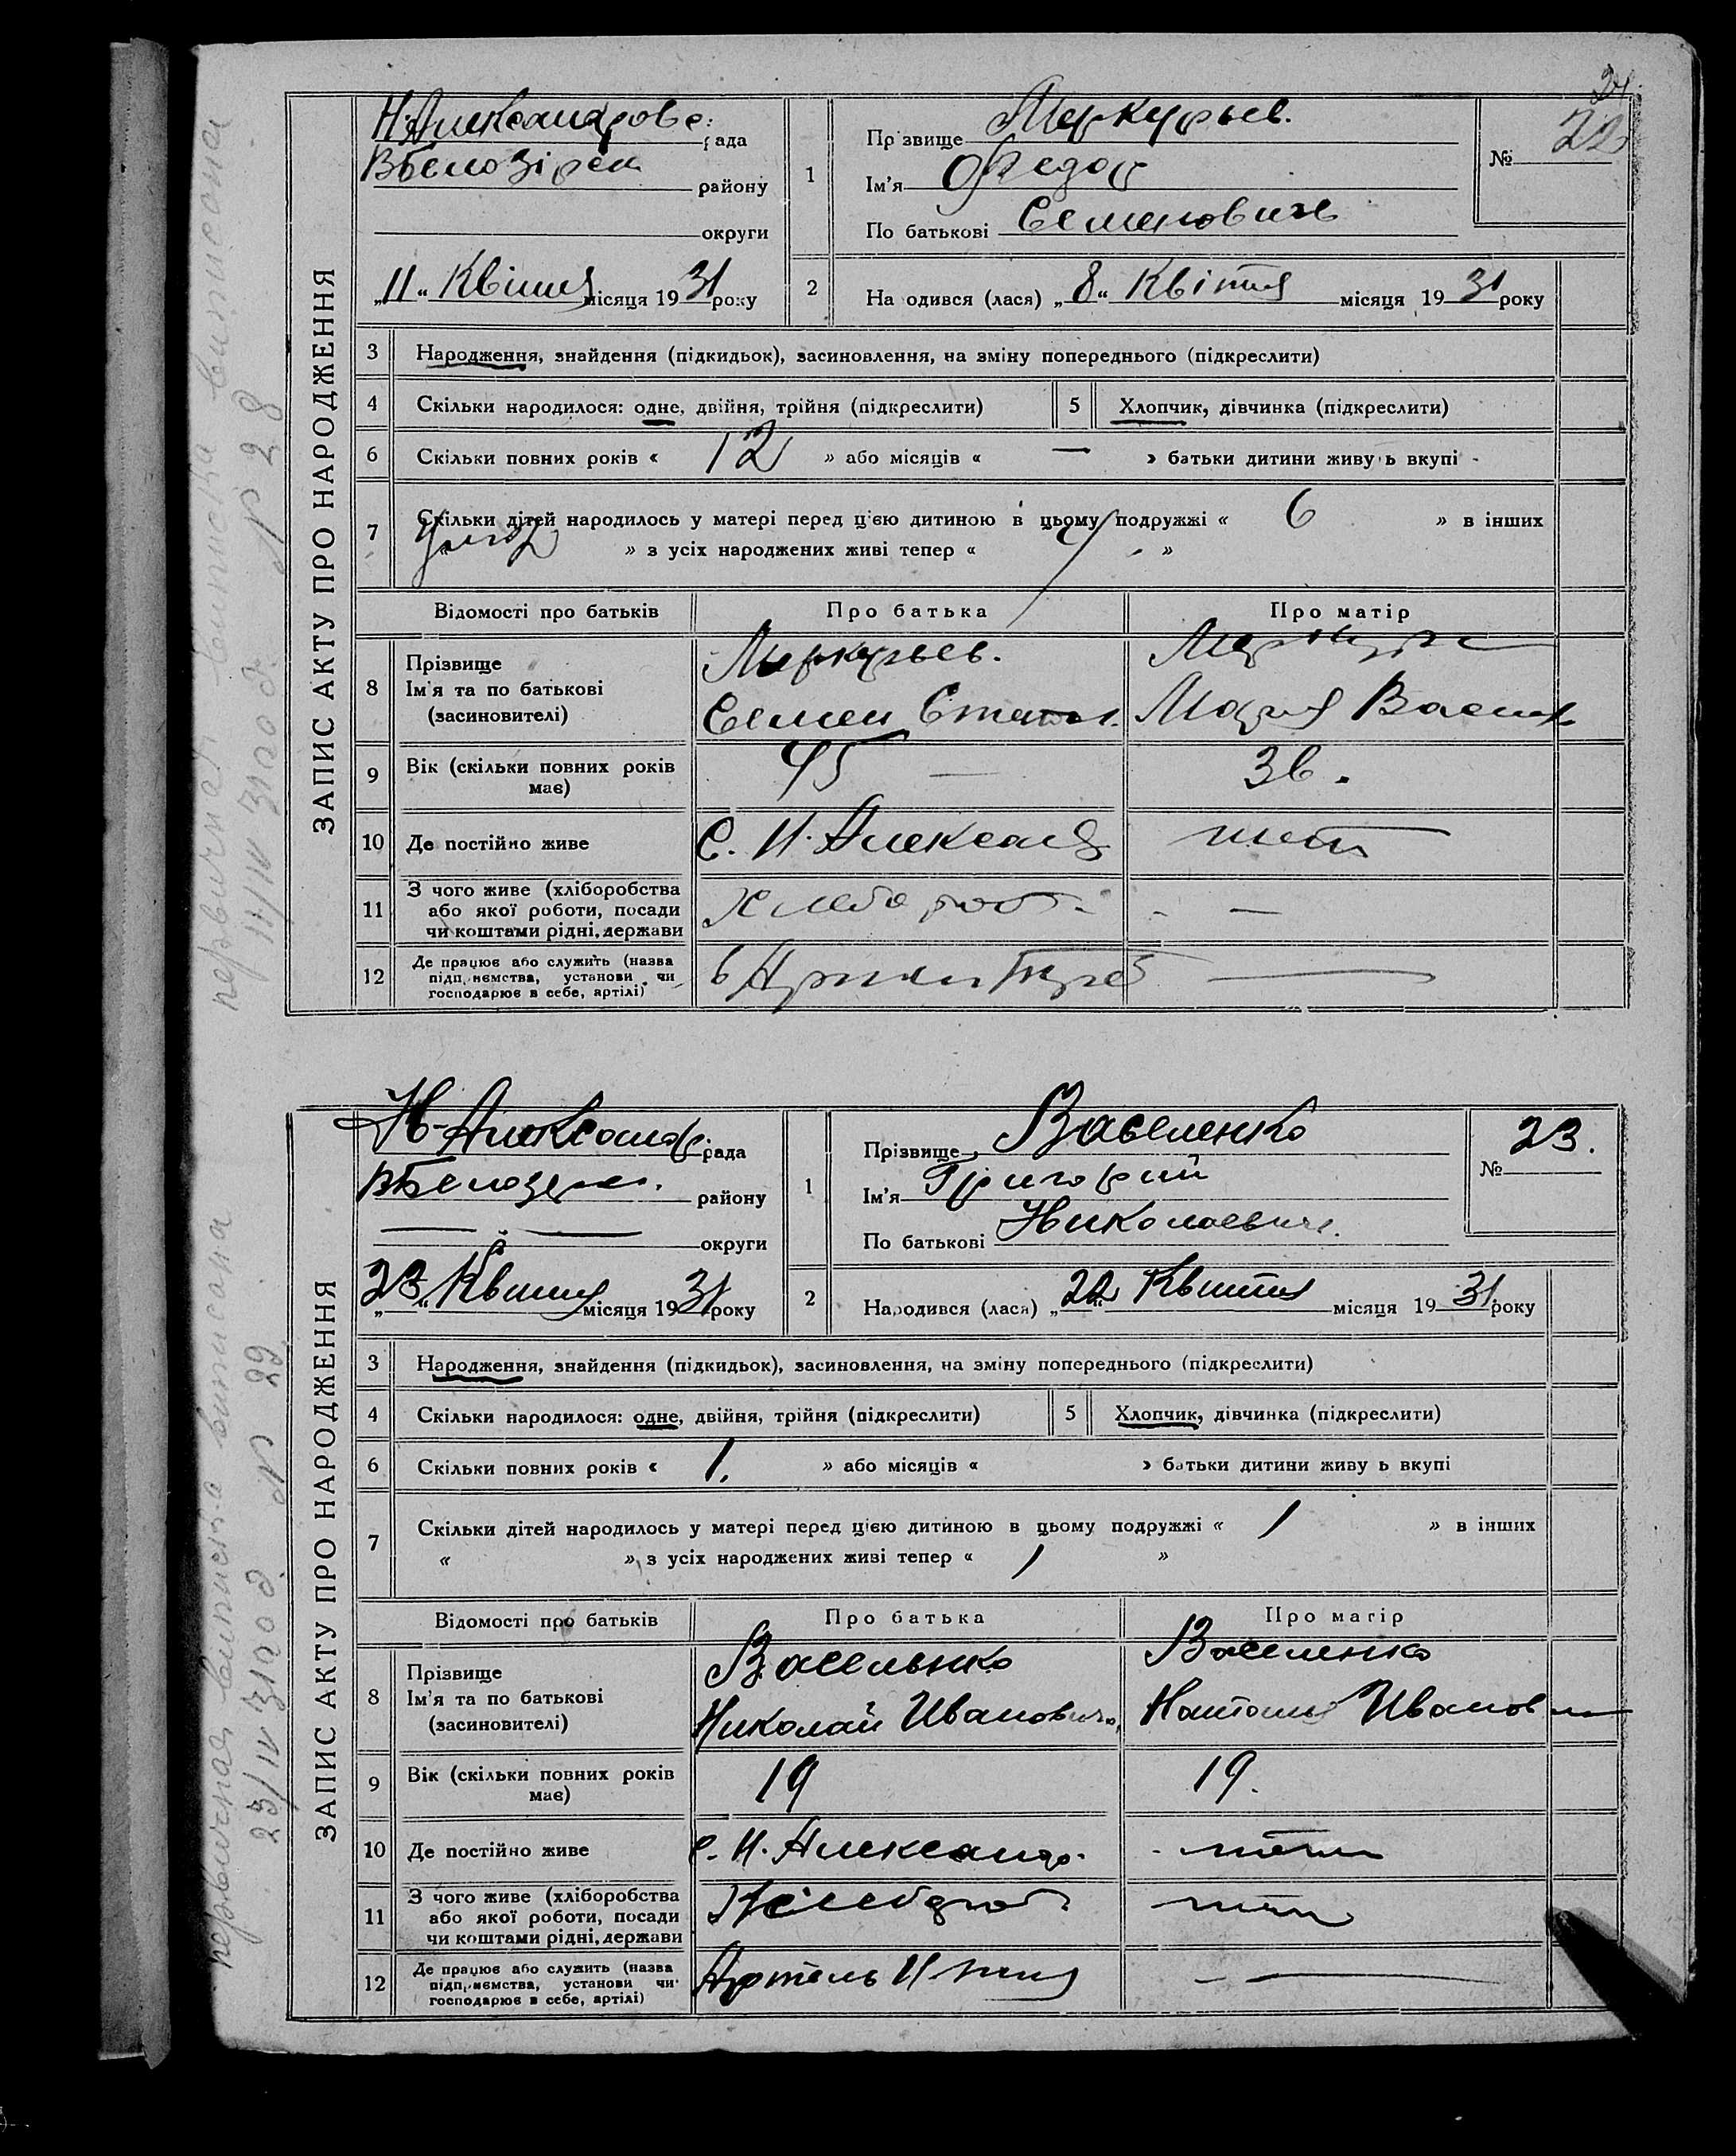 24
ЗАПИС АКТУ ПРО НАРОДЖЕННЯ
Н-Александров рада
ВБелозірск району
округи
„11“ Квітня місяця 1931 року
1
Прізвище Меркурьев.
Ім'я Федор
По батькові Семенович
№ 22
2
Народився (лася) „8“ Квітня місяця 1931 року
3 Народження, знайдення (підкидьок), засиновлення, на зміну попереднього (підкреслити)
4 Скільки народилося: одне, двійня, трійня (підкреслити)
5 Хлопчик, дівчинка (підкреслити)
6 Скільки повних років « 12 » або місяців « — » батьки дитини живуть вкупі
7 Скільки дітей народилось у матері перед цією дитиною в цьому подружжі « 6 » в інших
» з усіх народжених живі тепер « 4 »
Відомості про батьків Про батька Про матір
8 Прізвище
Ім'я та по батькові
(засиновителі)
Меркурьев.
Семен
Мария Васил
9 Вік (скільки повних років має) 45 36.
10 Де постійно живе С. Н. Александ
11 З чого живе (хліборобства або якої роботи, посади чи коштами рідні, держави Хлебороб — 
12 Де працює або служить (назва підприємства, установи чи господарює в себе, артілі) —
первичная виписка виписана
11/IV 31 год. № 28
ЗАПИС АКТУ ПРО НАРОДЖЕННЯ
Н-Александр. рада
ВБелозерск. району
— — округи
„23“ Квітня місяця 1931 року
1
Прізвище Васеленко
Ім'я Григорий
По батькові Николаевич.
№ 23.
2
Народився (лася) „22“ Квітня місяця 1931 року
3 Народження, знайдення (підкидьок), засиновлення, на зміну попереднього (підкреслити)
4 Скільки народилося: одне, двійня, трійня (підкреслити)
5 Хлопчик, дівчинка (підкреслити)
6 Скільки повних років « 1. » або місяців « » батьки дитини живуть вкупі
7 Скільки дітей народилось у матері перед цією дитиною в цьому подружжі « 1 » в інших
« » з усіх народжених живі тепер « 1 »
Відомості про батьків Про батька Про матір
8 Прізвище
Ім'я та по батькові
(засиновителі)
Васельнко
Николай Иванович
Васеленко
Наталия Иванов
9 Вік (скільки повних років має) 19 19.
10 Де постійно живе с. Н. Александр.
11 З чого живе (хліборобства або якої роботи, посади чи коштами рідні, держави Хлебороб
12 Де працює або служить (назва підприємства, установи чи господарює в себе, артілі) Артель —
первичная виписка виписана
23/IV 31 год. № 29